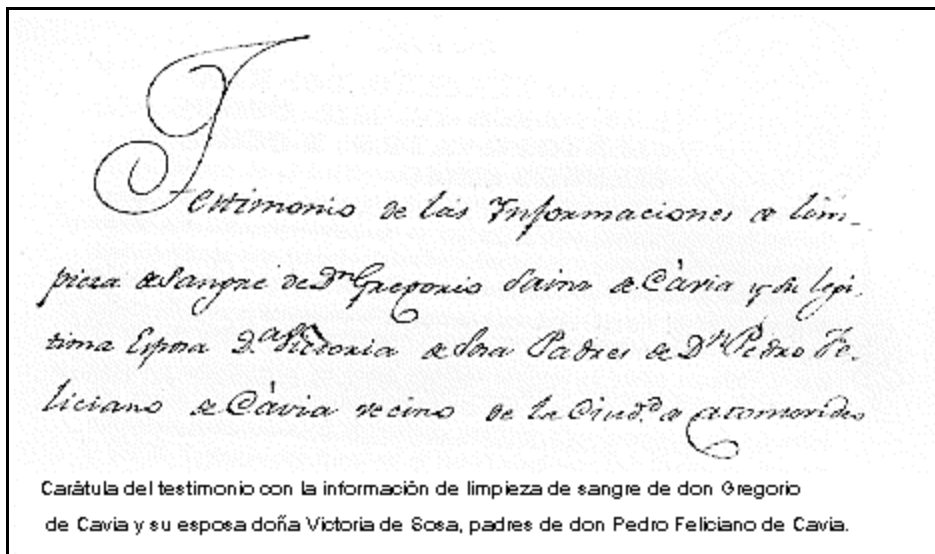 Testimonio de las Informaciones de lim-
pieza de Sangre de Dn Gregorio Sainz de Càvia y su legi-
tima Esposa D.a Victoria de Sosa Padres de Dn Pedro Fe-
liciano de Càvia vecino de la Ciud.d de Montevideo
Carátula del testimonio con la información de limpieza de sangre de don Gregorio
de Cavia y su esposa doña Victoria de Sosa, padres de don Pedro Feliciano de Cavia.